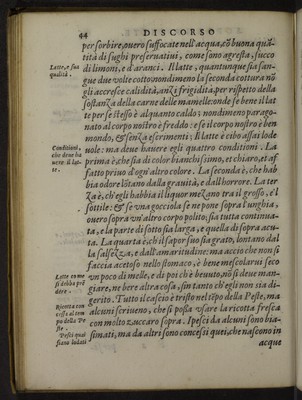 44 DISCORSO
per sorbire, ouero suffocate nell'acqua, cō buona quā-
tità di sughi preseruatiui, come sono agresta, succo
di limoni, e d'aranci. Il latte, quantunque sia san-
Latte, e sua
qualità.
gue due volte cotto nondimeno la seconda cottura nō
gli accresce calidità, anzi frigidità, per rispetto della
sostanza della carne delle mamelle: onde se bene il lat
te per se stesso è alquanto caldo; nondimeno parago-
nato al corpo nostro è freddo: e se il corpo nostro è ben
mondo, & senza escrimenti; Il latte è cibo assai lode
uole: ma deue hauere egli quattro conditioni. La
Conditioni,
che deue ha
uere il lat-
te.
prima è, che sia di color bianchissimo, et chiaro, et af
fatto priuo d'ogn'altro colore. La seconda è, che hab
bia odore lōtano dalla grauità, e dall'horrore. La ter
za è, ch'egli habbia il liquor mezano tra il grosso, e'l
sottile: & se vna gocciola se ne pone sopra l'unghia,
ouero sopra vn'altro corpo polito; sia tutta continua-
ta, e la parte di sotto sia larga, e quella di sopra acu-
ta. La quarta è, ch'il sapor suo sia grato, lontano dal
la salsezza, e dall'amaritudine: ma accio che non si
faccia acetoso nello stomaco; è bene mescolarui seco
vn poco di melle, e di poi ch'è beuuto, nō si deue man-
Latte come
si debba prē
dere
giare, ne bere altra cosa, sin tanto ch'egli non sia di-
gerito. Tutto il cascio è tristo nel tēpo della Peste, ma
alcuni scriueno, che si possa vsare la ricotta fresca
Ricotta con
cessa al tem
po della Pe-
ste.
con molto zuccaro sopra. I pesci da alcuni sono bia-
simati, ma da altri sono concessi quei, che nascono in
Pesci quai
siano lodati
acque